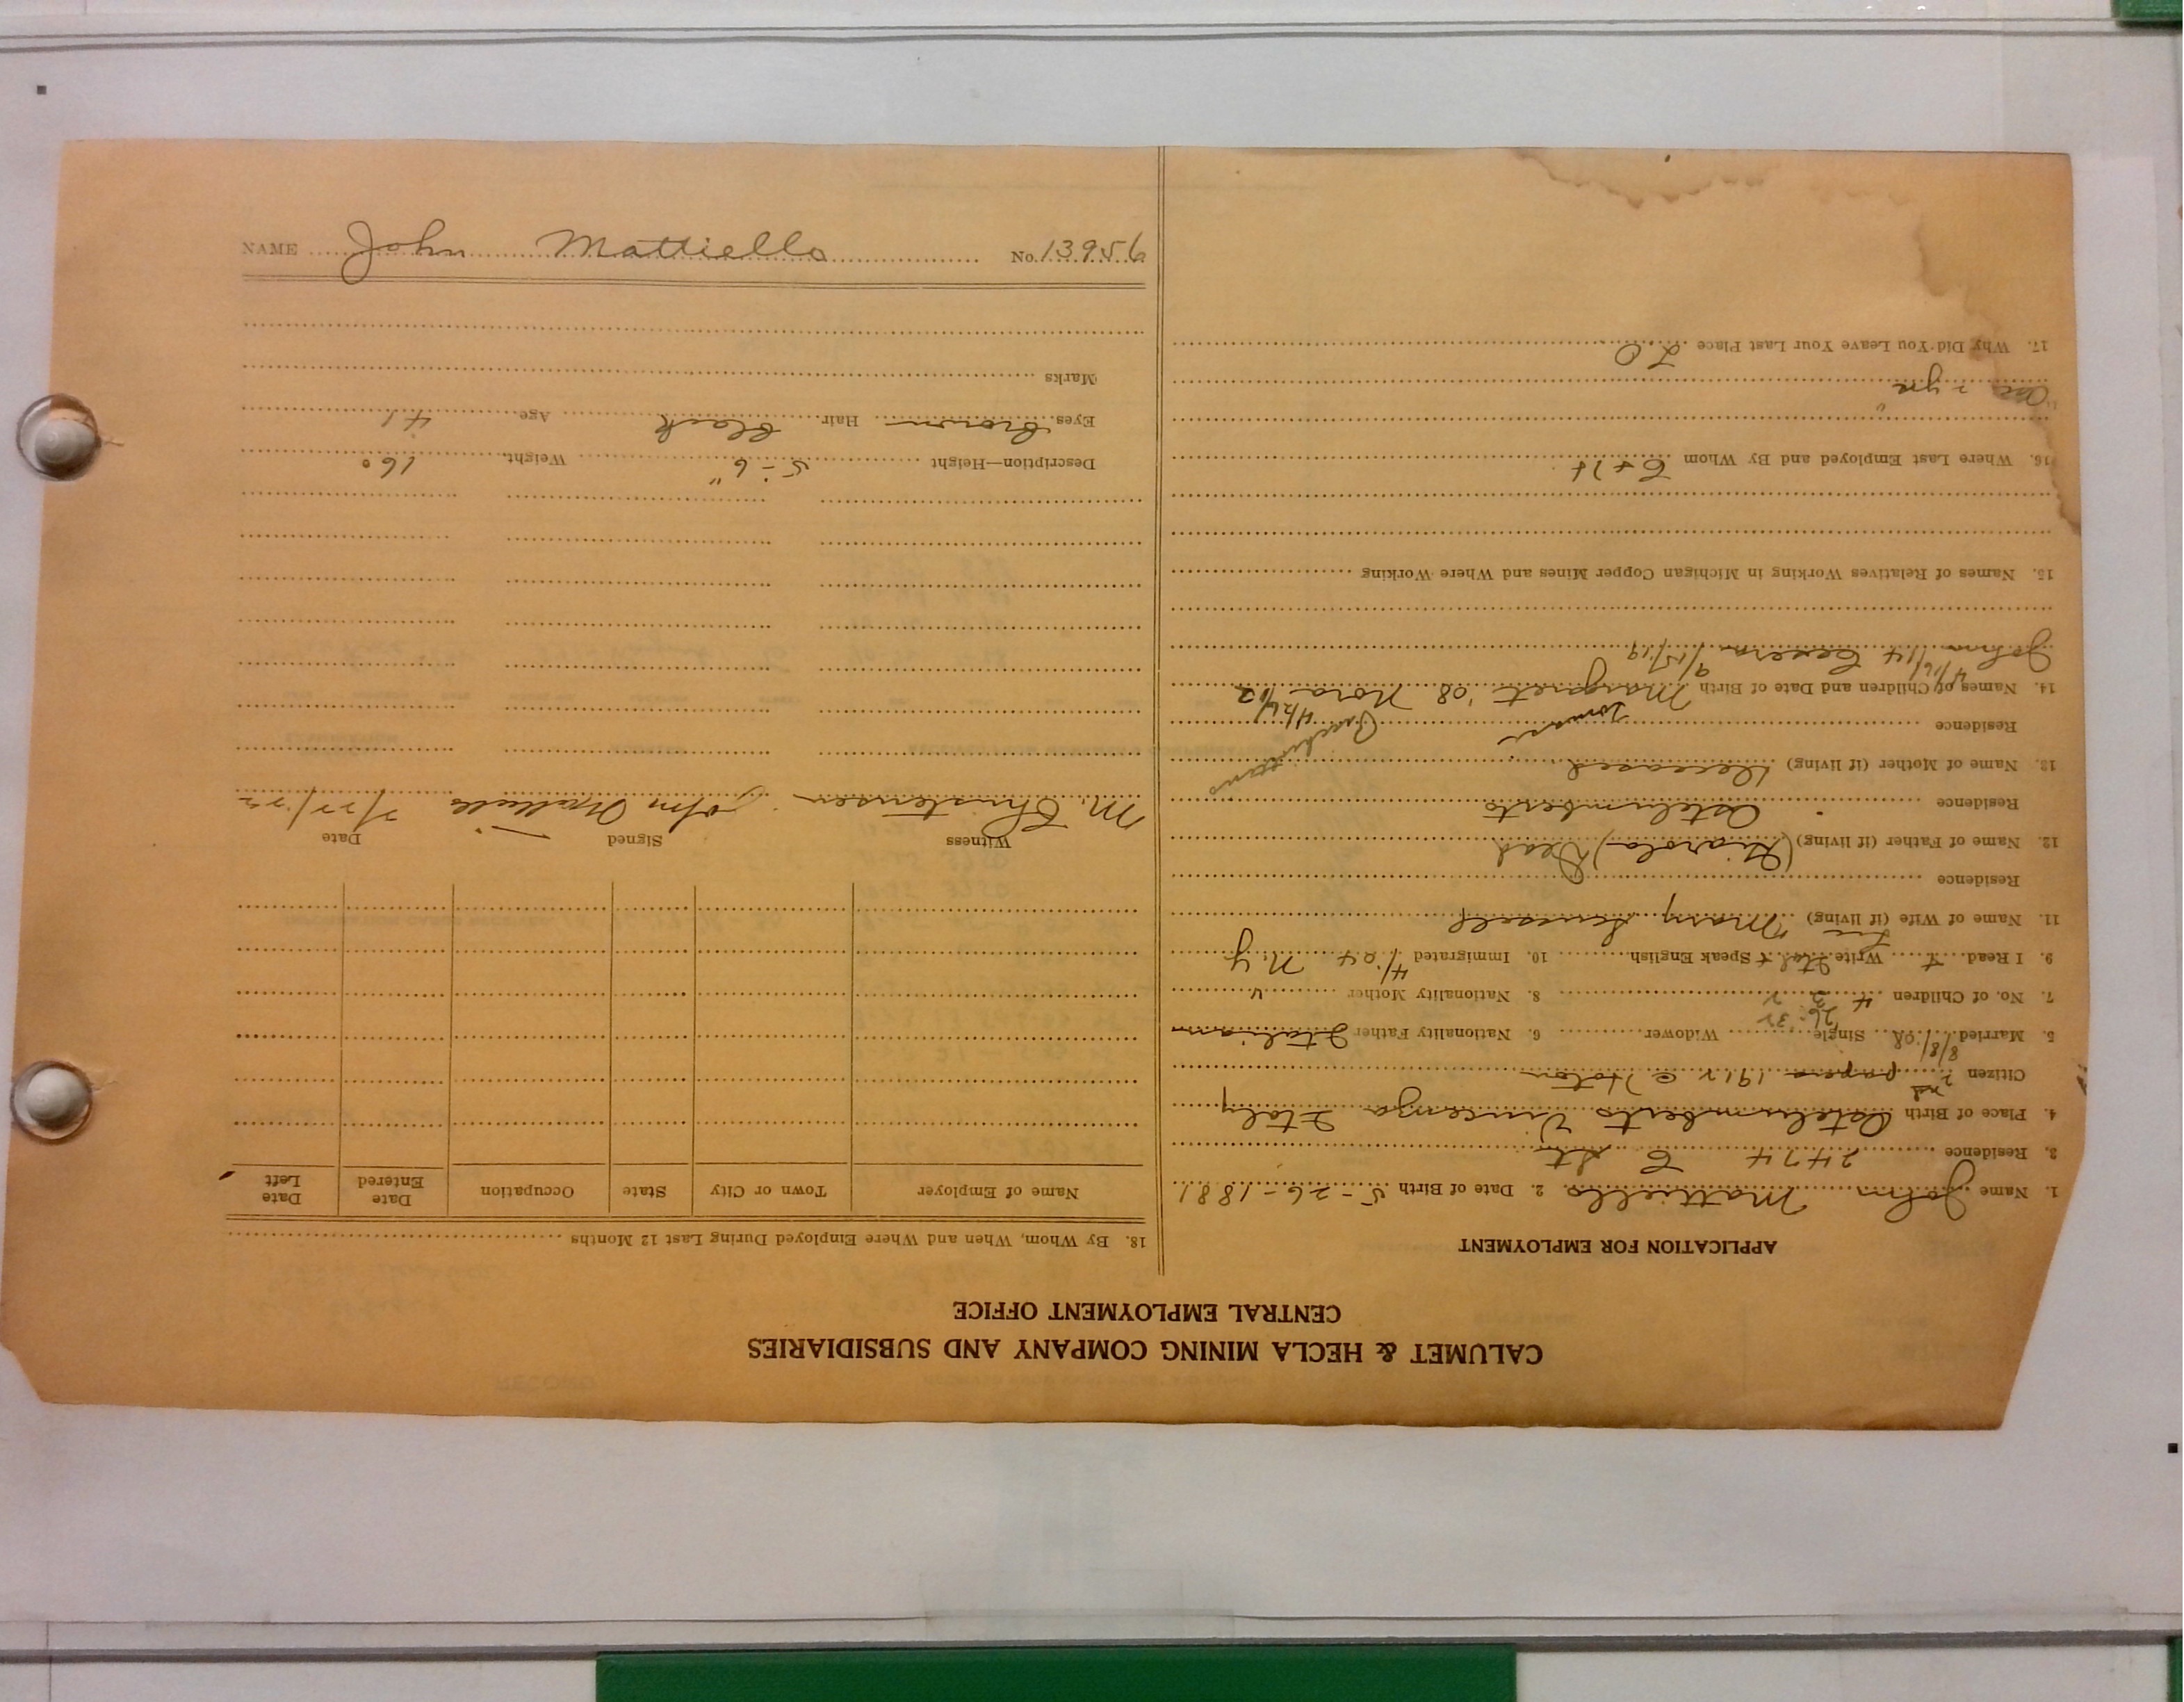 CALUMET & HECLA MINING COMPANY AND SUBSIDIARIES
CENTRAL EMPLOYMENT OFFICE
APPLICATION FOR EMPLOYMENT
1. Name John Mattiello 2. Date of Birth 5-26-1881
3. Residence 2474 C St.
4. Place of Birth Italy
Citizen 2nd papers 1912 @ Hoton
5. Married 8/8/08 Single Widower 6. Nationality Father Italian
26 32
7. No. of Children 4 2 2 8. Nationality Mother "
9. I Read + Write Ital + Speak English 10. Immigrated 4/04 N.Y
11. Name of Wife (if living) Mary
Residence
12. Name of Father (if living) Dead
Residence
13. Name of Mother (if living) Deceased
Residence
14. Names of Children and Date of Birth Margaret '08 Nora '12
John 4/16/14 9/15/19
15. Names of Relatives Working in Michigan Copper Mines and Where Working
16. Where Last Employed and By Whom C + H
2 yrs
17. Why Did You Leave Your Last Place L O
18. By Whom, When and Where Employed During Last 12 Months
Name of Employer Town or City State Occupation Date Entered Date Left
Witness Signed Date
M. Christensen John Mattiello 7/27/22
Description—Height 5-6" Weight 160
Eyes brown Hair black Age 41
Marks
NAME John Mattiello No. 13956